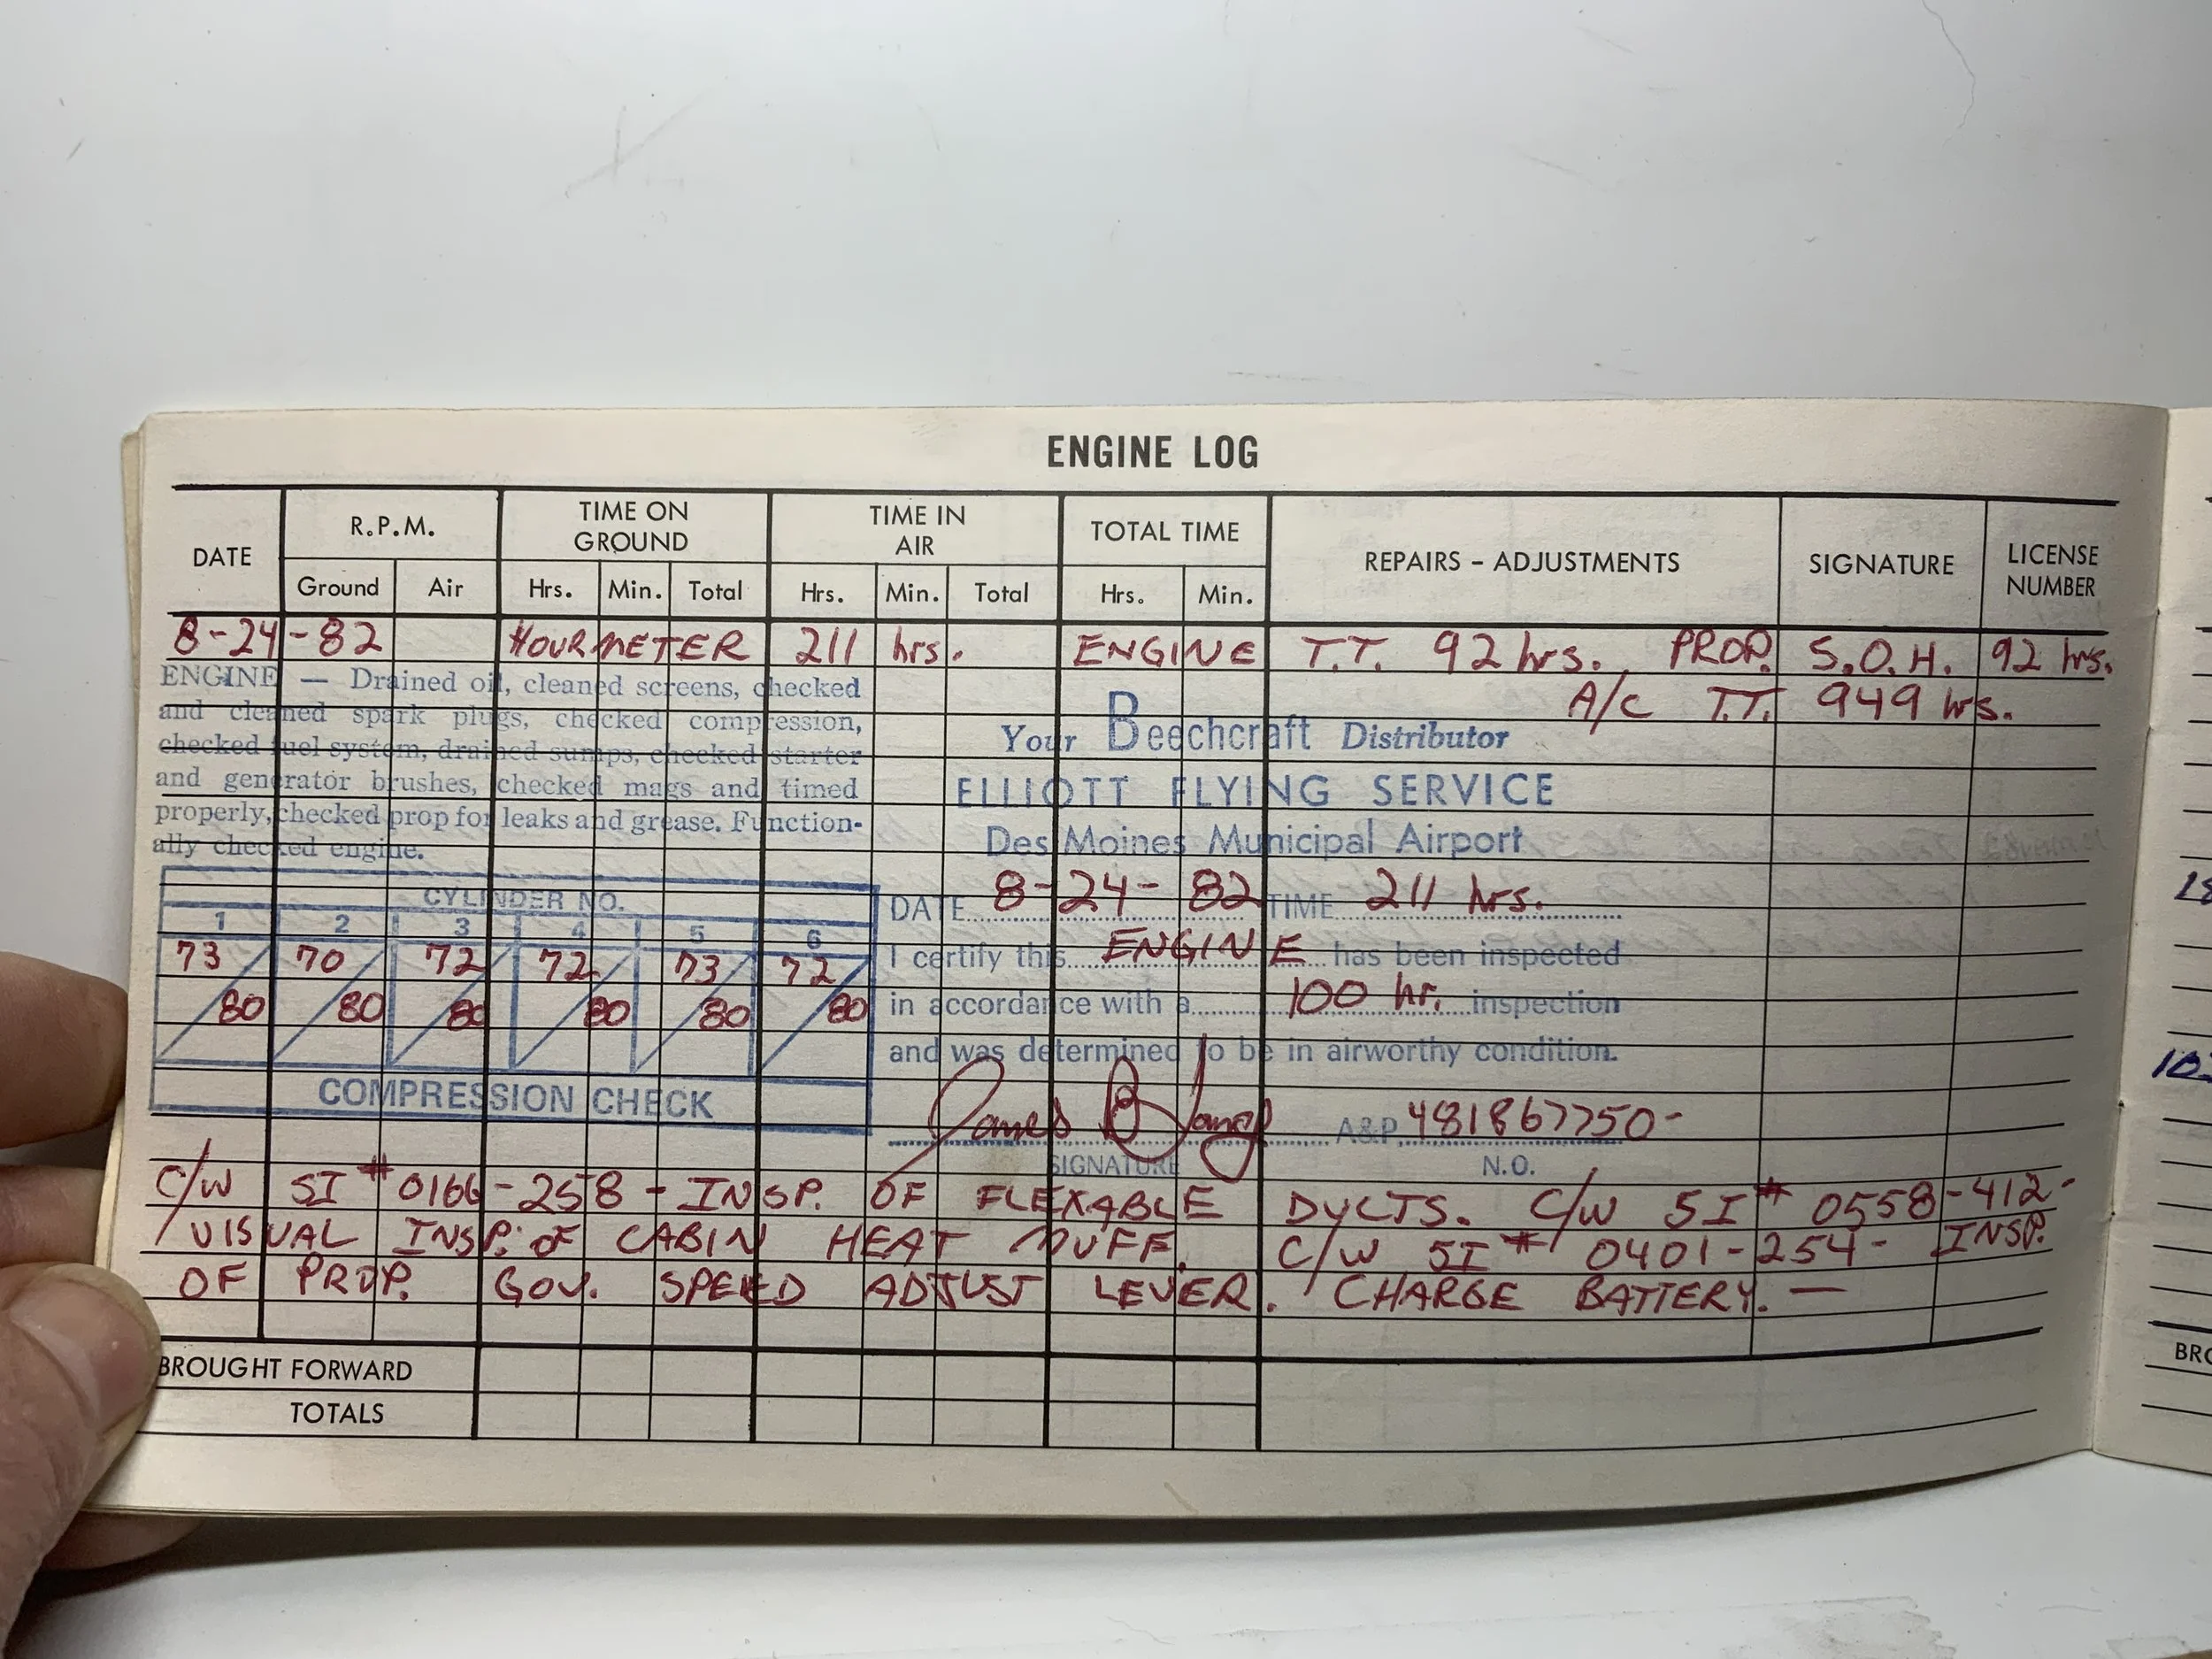 ENGINE LOG
DATE R.P.M. TIME ON GROUND TIME IN AIR TOTAL TIME REPAIRS - ADJUSTMENTS SIGNATURE LICENSE NUMBER
Ground Air Hrs. Min. Total Hrs. Min. Total Hrs. Min.
8-24-82 HOURMETER 211 hrs. ENGINE T.T. 92 hrs. PROP. S.O.H. 92 hrs.
A/C T.T. 949 hrs.
ENGINE — Drained oil, cleaned screens, checked
and cleaned spark plugs, checked compression,
checked fuel system, drained sumps, checked starter
and generator brushes, checked mags and timed
properly, checked prop for leaks and grease. Function-
ally checked engine.
Your Beechcraft Distributor
ELLIOTT FLYING SERVICE
Des Moines Municipal Airport
CYLINDER NO.
1 2 3 4 5 6
73 70 72 72 73 72
80 80 80 80 80 80
COMPRESSION CHECK
DATE 8-24-82 TIME 211 hrs.
I certify this ENGINE has been inspected
in accordance with a 100 hr. inspection
and was determined to be in airworthy condition.
James B A&P 481867750-
SIGNATURE N.O.
C/W SI # 0166-258 - INSP. OF FLEXABLE DUCTS. C/W SI # 0558-412-
VISUAL INSP. OF CABIN HEAT MUFF. C/W SI # 0401-254- INSP.
OF PROP. GOV. SPEED ADJUST LEVER. CHARGE BATTERY. —
BROUGHT FORWARD
TOTALS
18
10
BRO